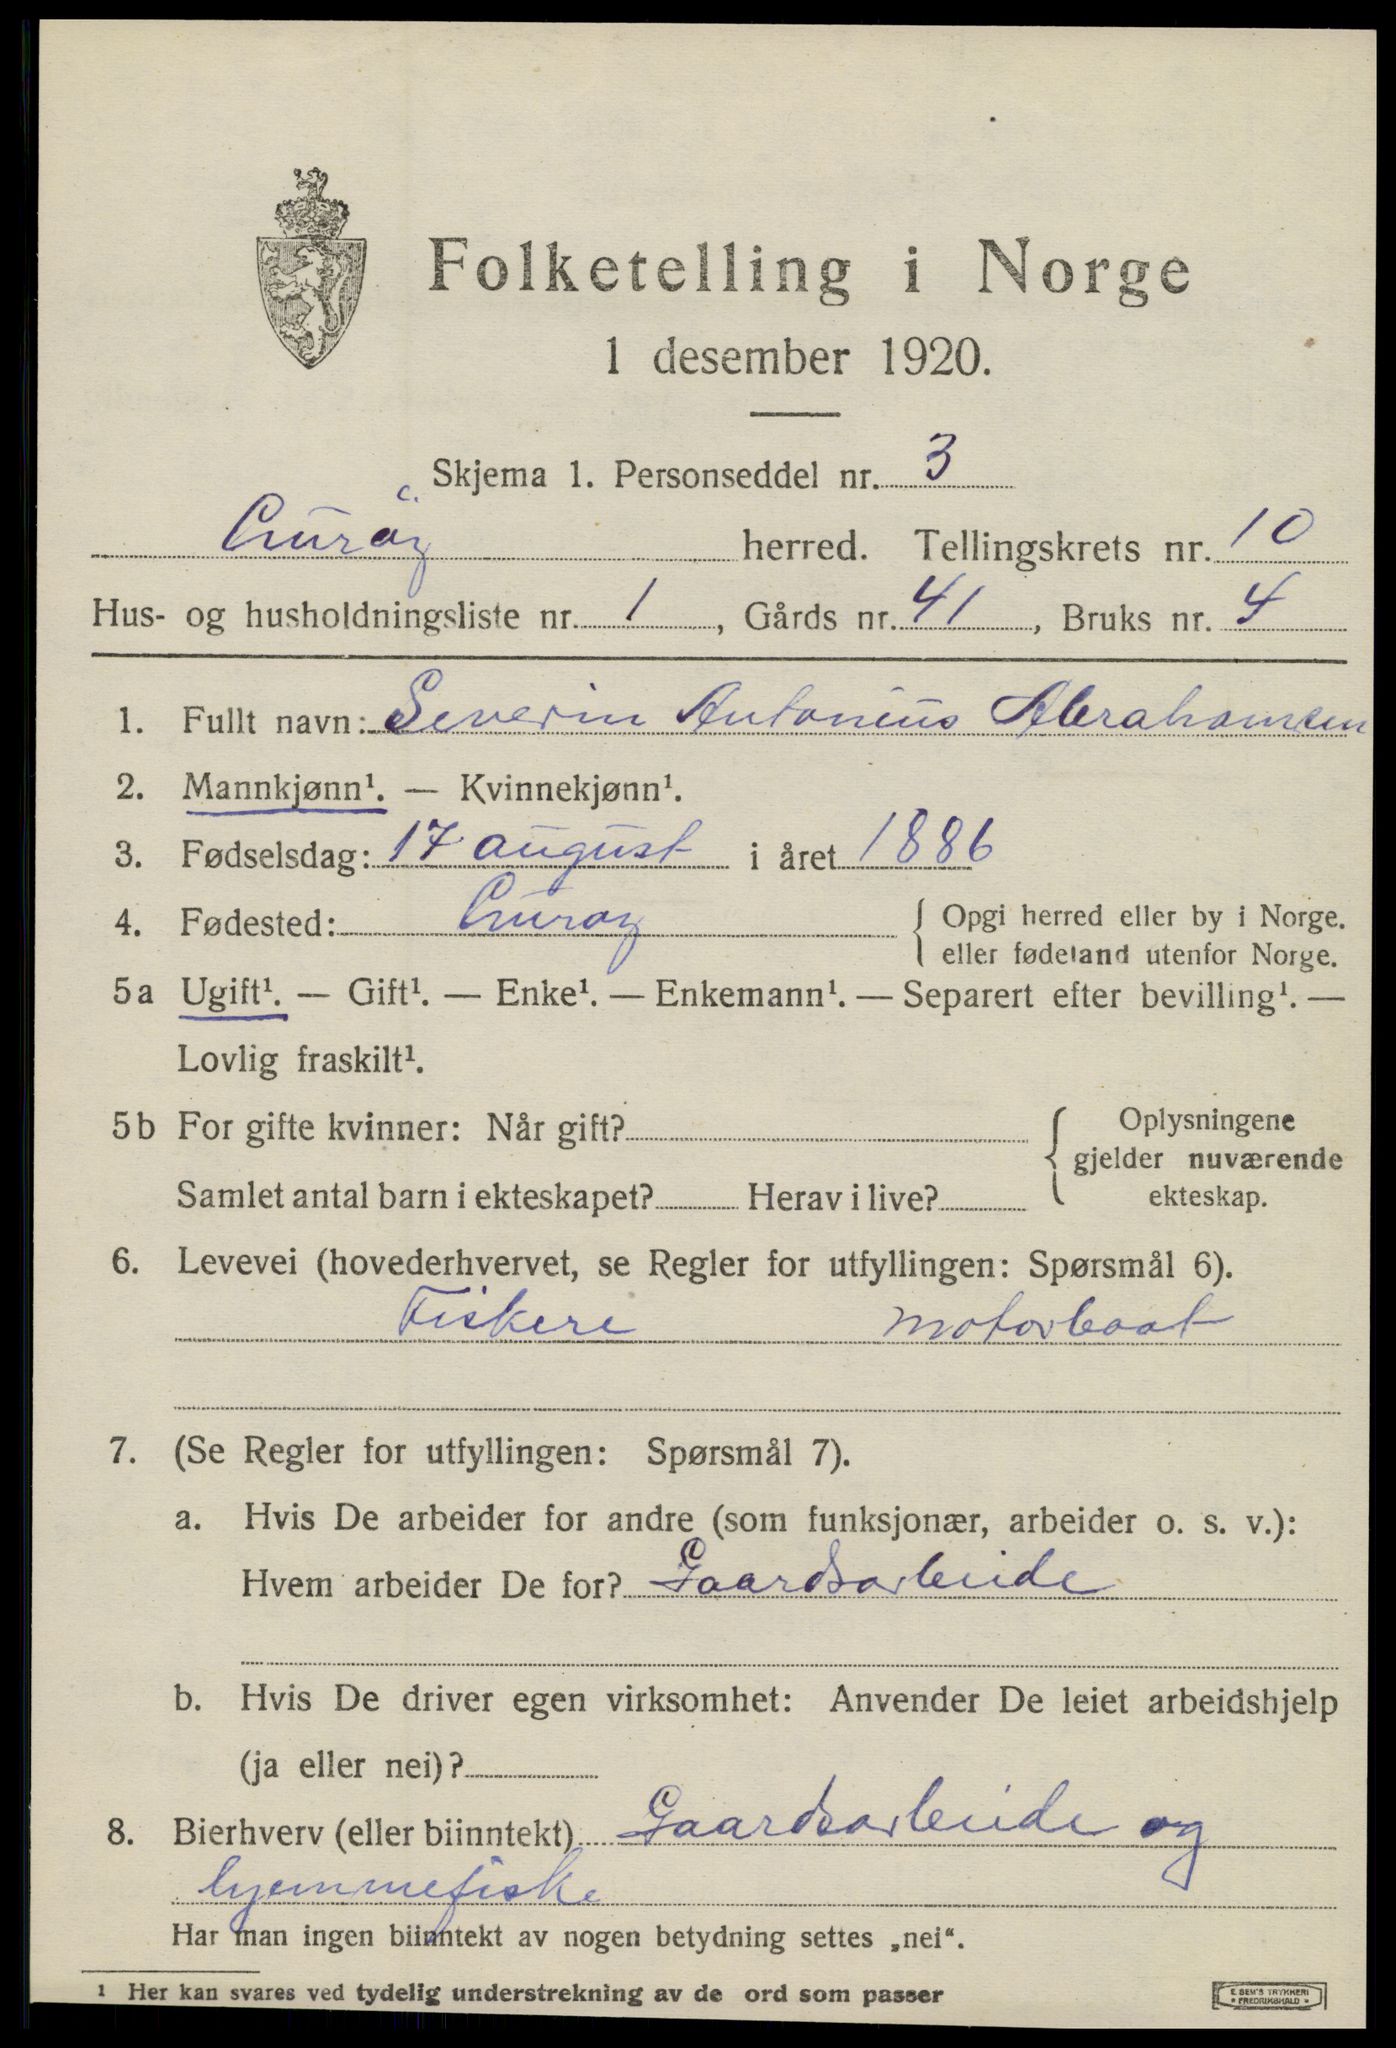 Folketelling i Norge
1 desember 1920.
Skjema 1. Personseddel nr. 3
herred. Tellingskrets nr. 10
Hus- og husholdningsliste nr. 1, Gårds nr. 41, Bruks nr. 4
1. Fullt navn: Severin Antonius Abrahamsen
2. Mannkjønn¹. — Kvinnekjønn¹.
3. Fødselsdag: 17 august i året 1886
4. Fødested: { Opgi herred eller by i Norge.
eller fødeland utenfor Norge.
5a Ugift¹. — Gift¹. — Enke¹. — Enkemann¹. — Separert efter bevilling¹. —
Lovlig fraskilt¹.
5b For gifte kvinner: Når gift? { Oplysningene
gjelder nuværende
Samlet antal barn i ekteskapet? Herav i live? ekteskap.
6. Levevei (hovederhvervet, se Regler for utfyllingen: Spørsmål 6).
Fiskere motorbaat
7. (Se Regler for utfyllingen: Spørsmål 7).
a. Hvis De arbeider for andre (som funksjonær, arbeider o. s. v.):
Hvem arbeider De for? Gaardsarbeide
b. Hvis De driver egen virksomhet: Anvender De leiet arbeidshjelp
(ja eller nei)?
8. Bierhverv (eller biinntekt) Gaardsarbeide og
hjemmefiske
Har man ingen biinntekt av nogen betydning settes „nei“.
1 Her kan svares ved tydelig understrekning av de ord som passer
E. SEM'S TRYKKERI
* FREDRIKSHALD *